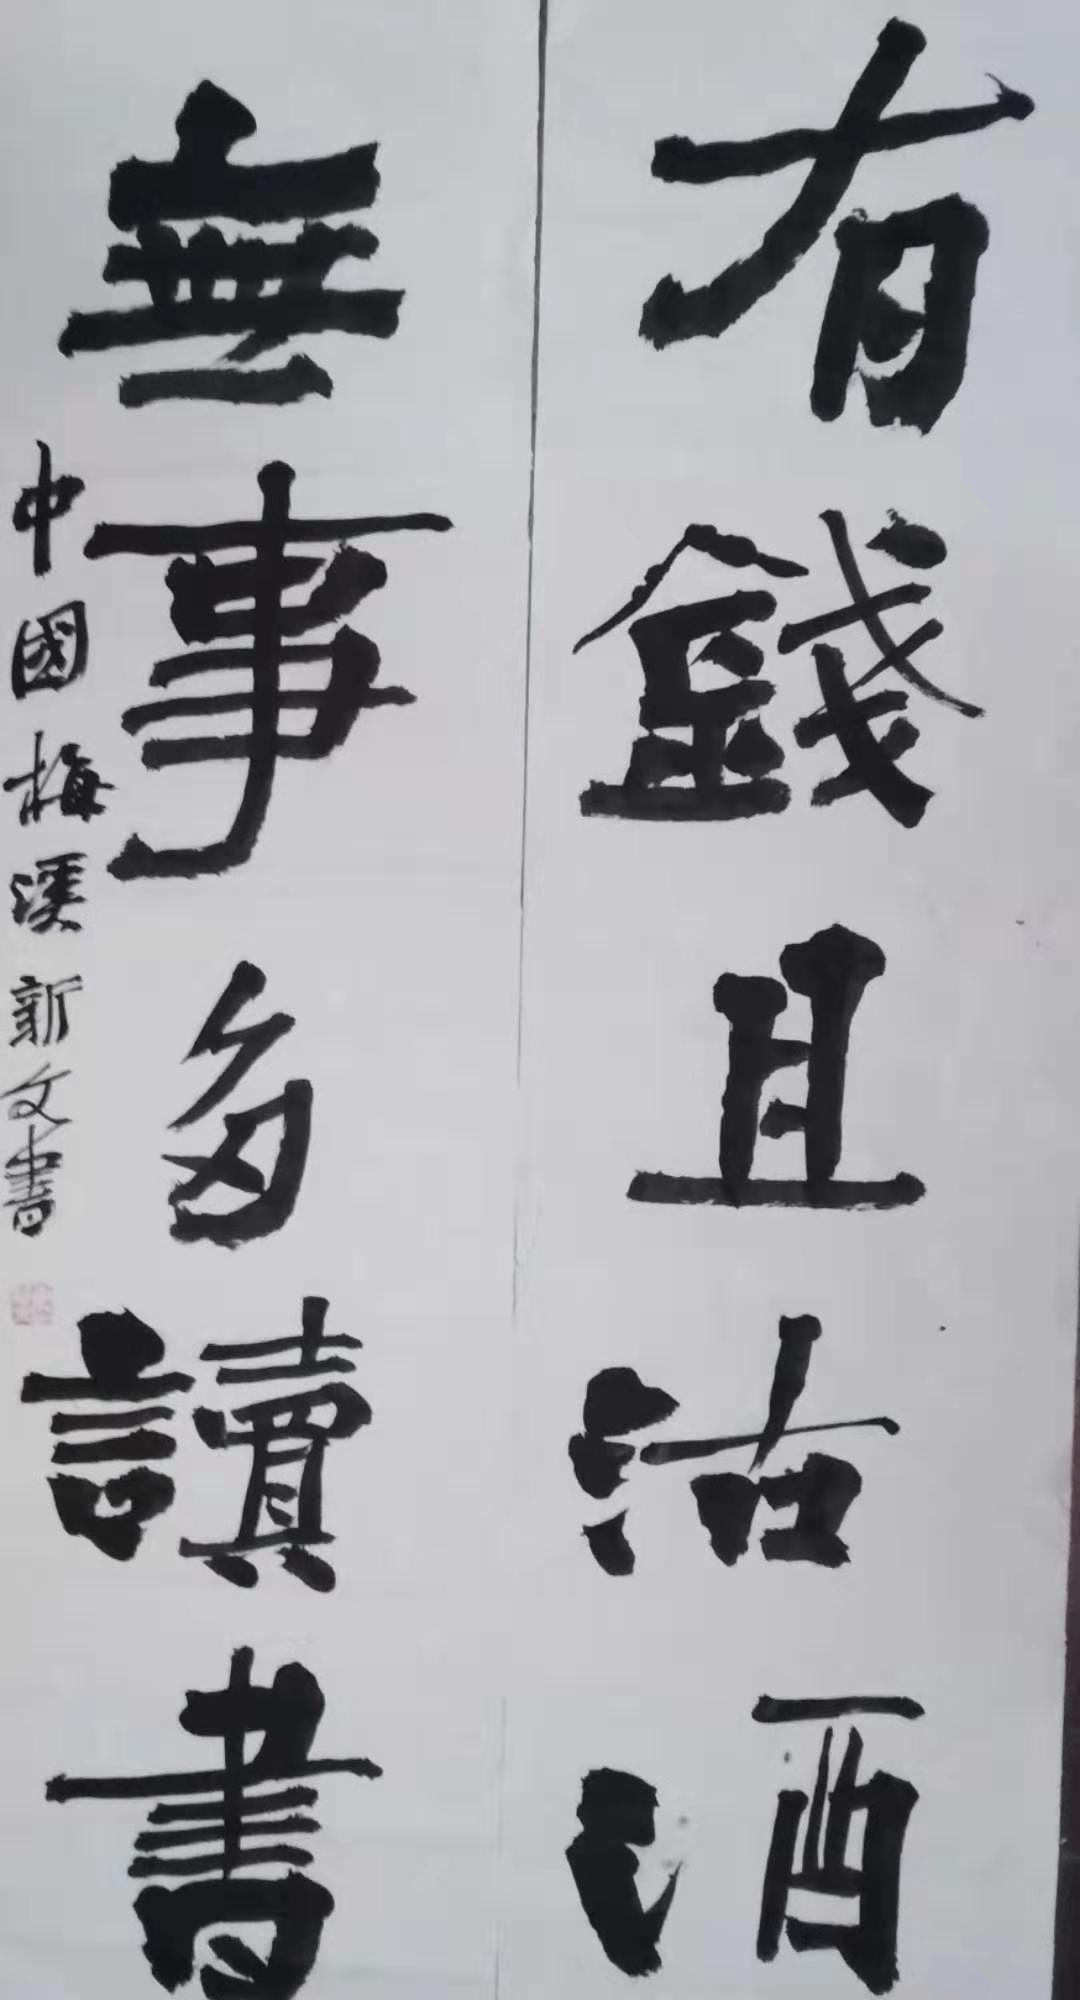 有錢且沽酒
無事多讀書
中國梅溪新文書